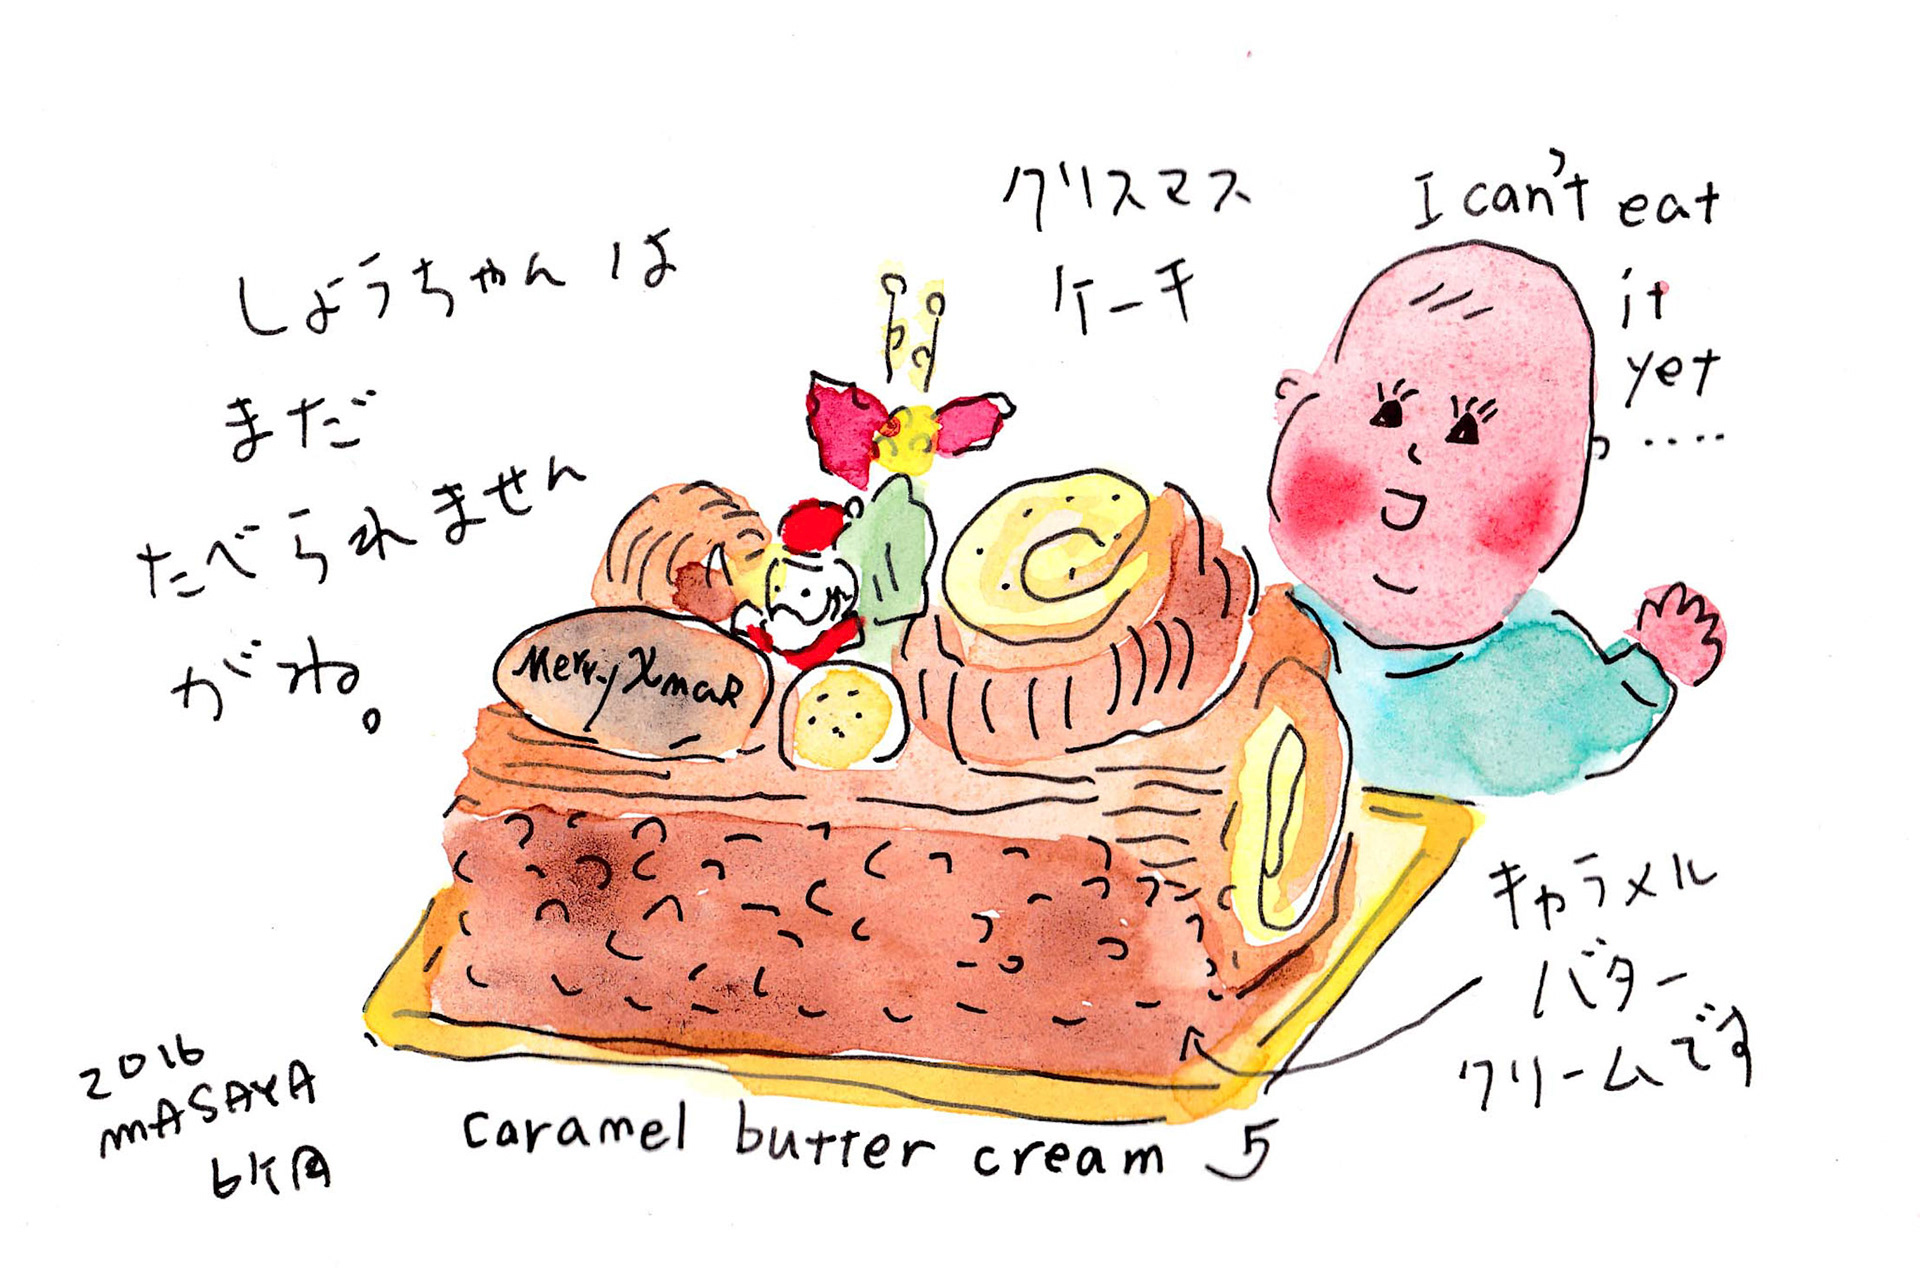 しょうちゃんは
まだ
たべられません
がね。
クリスマス
ケーキ
I can't eat
it
yet
.....
Merry Xmas
キャラメル
バター
クリームです
caramel butter cream
2016
MASAYA